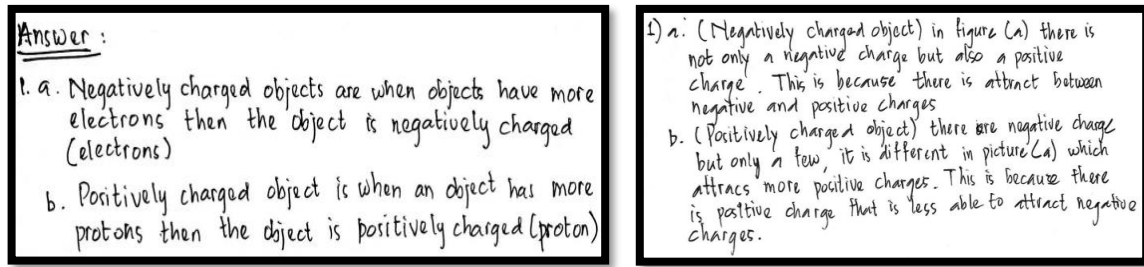 Answer :
1. a. Negatively charged objects are when objects have more
electrons then the object is negatively charged
(electrons)
b. Positively charged object is when an object has more
protons then the object is positively charged (proton)
1) a. (Negatively charged object) in figure (a) there is
not only a negative charge but also a positive
charge. This is because there is attract between
negative and positive charges
b. (Positively charged object) there are negative charge
but only a few, it is different in picture (a) which
attracs more positive charges. This is because there
is positive charge that is less able to attract negative
charges.